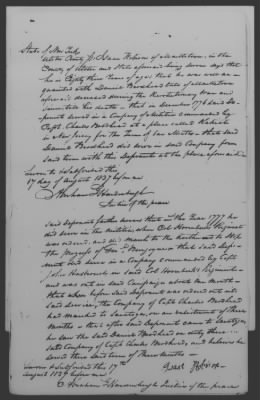 State of New York
Ulster County SS. Isaac        of Marbletown, in the
County of Ulster and State aforesaid being sworn says that
he is Eighty three Years of age; that he was well ac-
quainted with Daniel Brodhead late of Marbletown
aforesaid deceased during the Revolutionary War and
since till his death - that in December 1776 said De-
ponent served in a Company of Militia commanded by
Capt. Charles Brodhead at a place called
in New Jersey for the Term of       Months - that said
Daniel Brodhead did serve in said Company
said term with this Deponent at the place aforesaid -
Sworn & subscribed this
17 day of August 1837 before me
Abraham J Hardenbergh
Justice of the peace
said deponent further swears that in the Year 1777, he
did serve in the militia, when Col Hornbeck's Regiment
was ordered, and did march to the Northward to
the progress of Gen. Burgoyne - that said depo-
nent had served in a Company commanded by Capt.
John Hasbrouck in said Col Hornbeck's Regiment -
and was out on said Campaign about      Month -
that when before said deponent was ordered out as
said service, the Company of Capt. Charles Brodhead
had marched to Saratoga, on an enlistment of three
Months - that after said Deponent came to Saratoga,
he saw the said Daniel Brodhead on duty there in
said Company of Capt. Charles Brodhead, and believes he
served there said term of three Months -
Sworn & subscribed this 17th
August 1837 before me
Abraham J Hardenbergh Justice of the peace